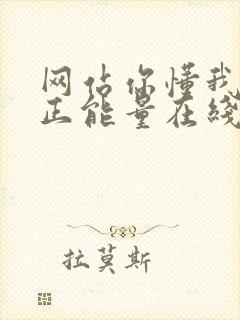 网站你懂我
正能量在线
拉莫斯